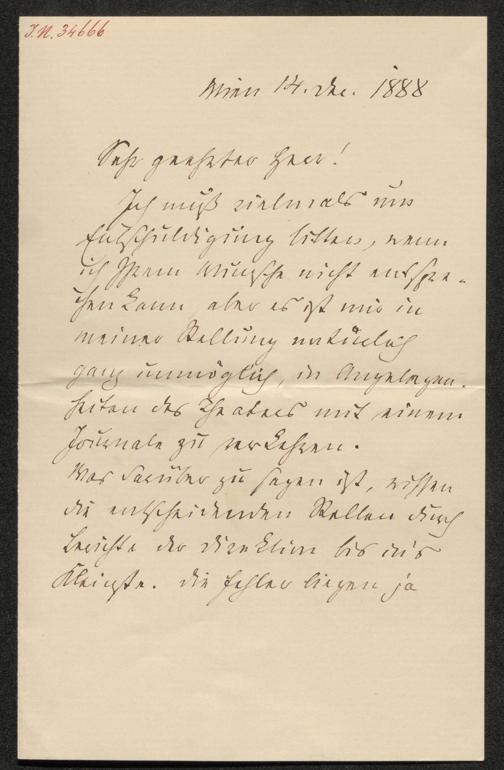 I.N. 34666
Wien 14. Dec. 1888
Sehr geehrter Herr!
Ich muß vielmals um
Entschuldigung bitten, wenn
ich Ihrem Wunsche nicht entspre-
chen kann, aber es ist mir in
meiner Stellung natürlich
ganz unmöglich, in Angelegen-
heiten des Theaters mit einem
Journale zu verkehren.
Was darüber zu sagen ist, wissen
die entscheidenden Stellen durch
Berichte der Direktion bis in's
Kleinste. Die Fehler liegen ja